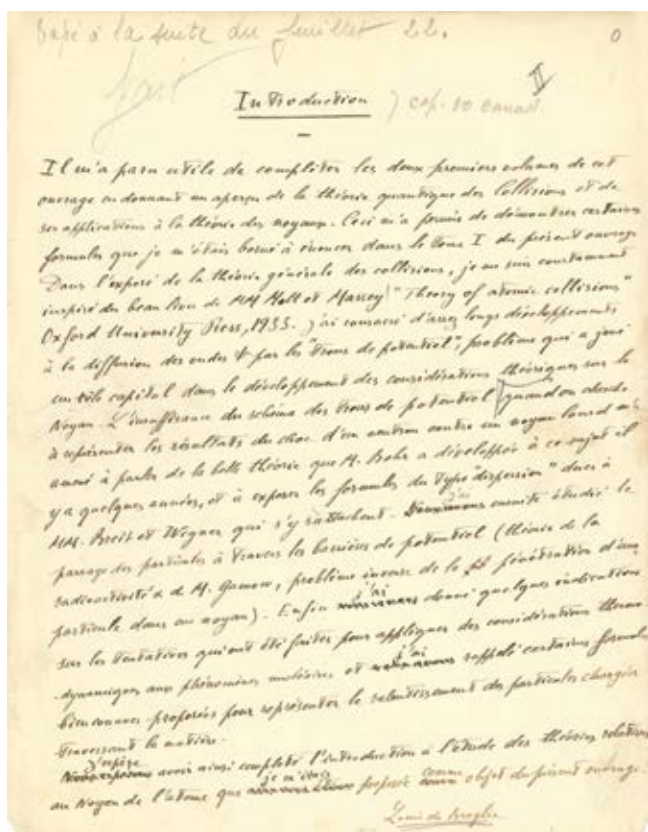 Tapé à la suite du feuillet 22.
0
II
Introduction
cap. 10 canad.
Il m'a paru utile de compléter les deux premiers volumes de cet
ouvrage en donnant un aperçu de la théorie quantique des Collisions et de
ses applications à la théorie des noyaux. Ceci m'a permis de démontrer certaines
formules que je m'étais borné à énoncer dans le tome I du présent ouvrage
Dans l'exposé de la théorie générale des collisions, je me suis constamment
inspiré du beau livre de MM Mott et Massey "Theory of atomic collisions"
Oxford University Press, 1933. J'ai consacré d'assez longs développements
à la diffusion des ondes Ψ par les "trous de potentiel", problème qui a joué
un rôle capital dans le développement des considérations théoriques sur le
Noyau. L'insuffisance du schéma des trous de potentiel quand on aborde
à représenter les résultats du choc d'un neutron contre un noyau lourd m'a
amené à parler de la belle théorie que M. Bohr a développée à ce sujet il
y a quelques années, et à exposer les formules du type "dispersion" dues à
MM. Breit et Wigner qui s'y rattachent. j'ai ensuite étudié le
passage des particules à travers les barrières de potentiel (théorie de la
radioactivité α de M. Gamow, problème inverse de la pénétration d'une
particule dans un noyau). Enfin j'ai donné quelques indications
sur les tentatives qui ont été faites pour appliquer des considérations thermo-
-dynamiques aux phénomènes nucléaires et j'ai rappelé certaines formules
bien connues proposées pour représenter le ralentissement des particules chargées
traversant la matière.
J'espère avoir ainsi complété l'introduction à l'étude des théories relatives
au Noyau de l'atome que je m'étais proposée comme objet du présent ouvrage.
Louis de Broglie